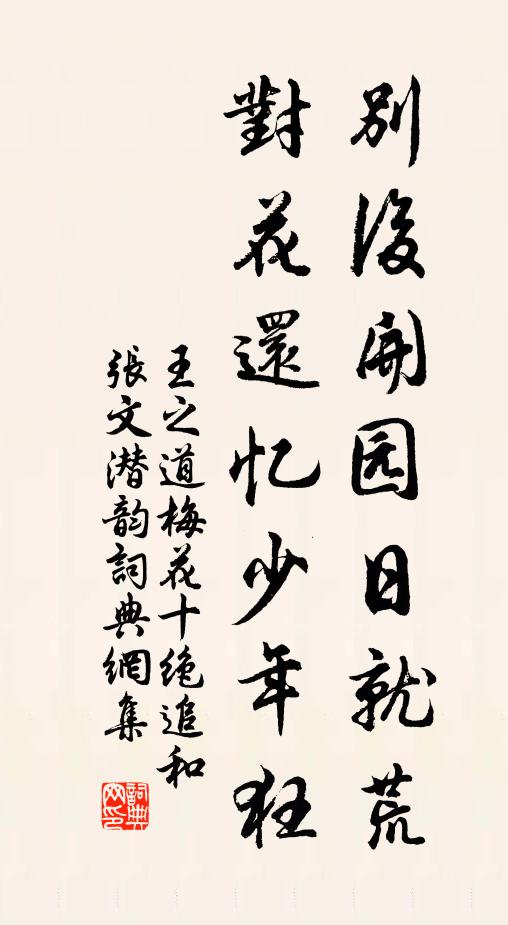 別後開园日就荒
對花還忆少年狂
王之道梅花十绝追和
張文潜韵詞典網集
詞典网印